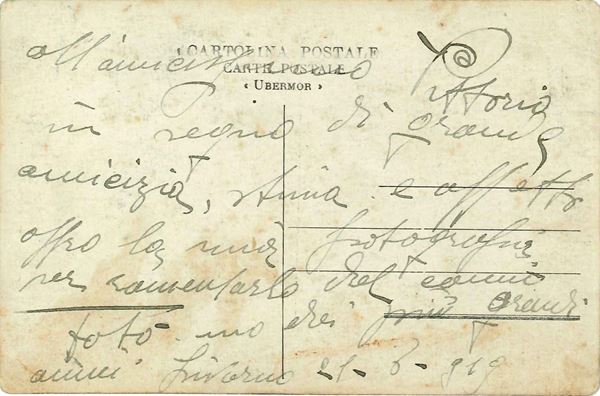 CARTOLINA POSTALE
CARTE POSTALE
UBERMOR
all'amicissimo Vittorio
in segno di grande
amicizia, stima e affetto
offro la mia fotografia
per
più grandi
foto uno dei
amici Livorno 21-6-919